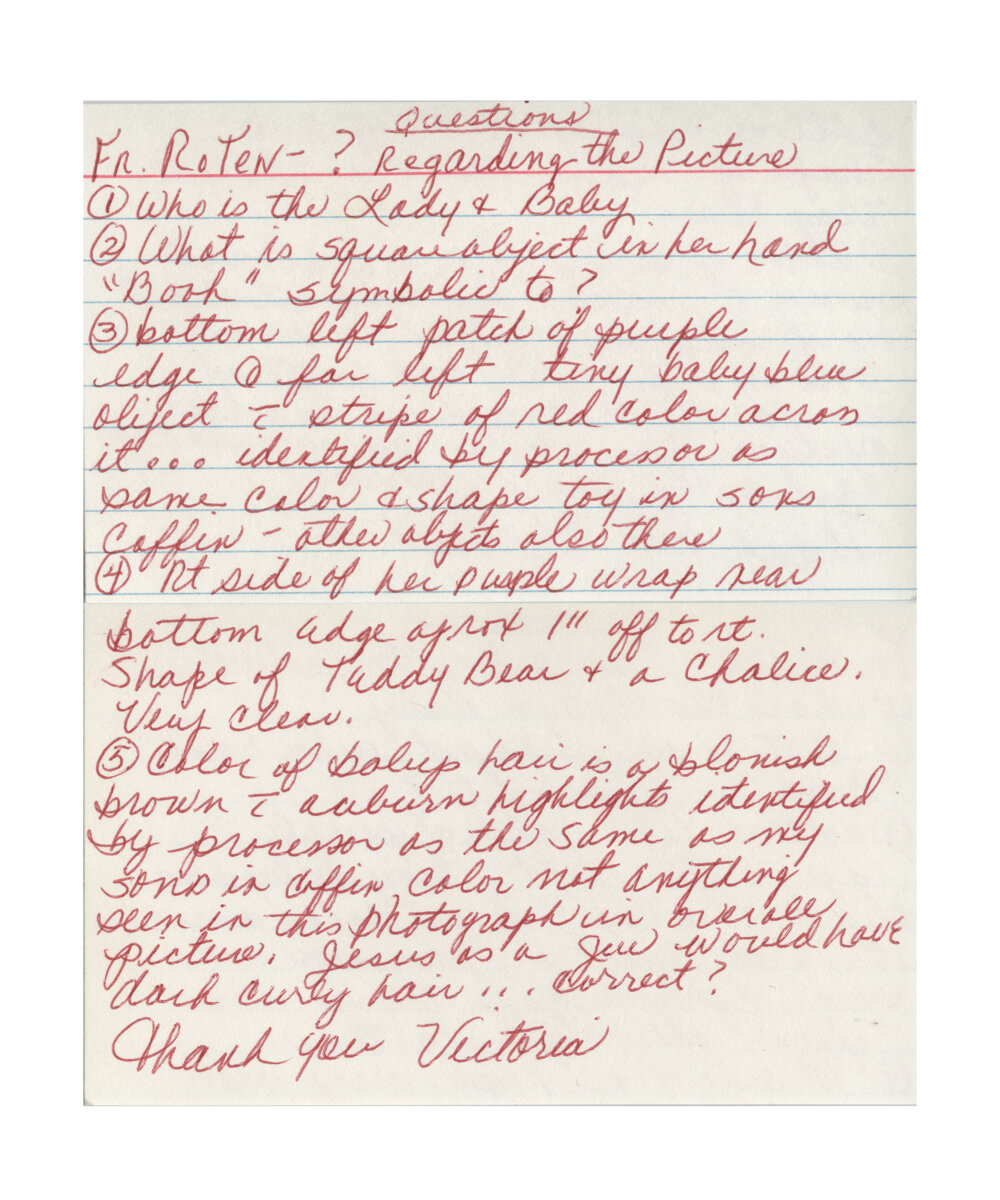 Questions
Fr. Roten - ? Regarding the Picture
① Who is the Lady & Baby
② What is square object in her hand
"Book" symbolic to?
③ bottom left patch of purple
edge @ far left tiny baby blue
object c̄ stripe of red color across
it... identified by processor as
same color & shape toy in sons
coffin - other objects also there
④ Rt side of her purple wrap near
bottom edge aprox 1" off to rt.
Shape of Teddy Bear & a Chalice.
Very clear.
⑤ Color of babys hair is a blonish
brown c̄ auburn highlights identified
by processor as the same as my
sons in coffin, color not anything
seen in this photograph in overall
picture. Jesus as a Jew would have
dark curly hair... correct?
Thank you Victoria